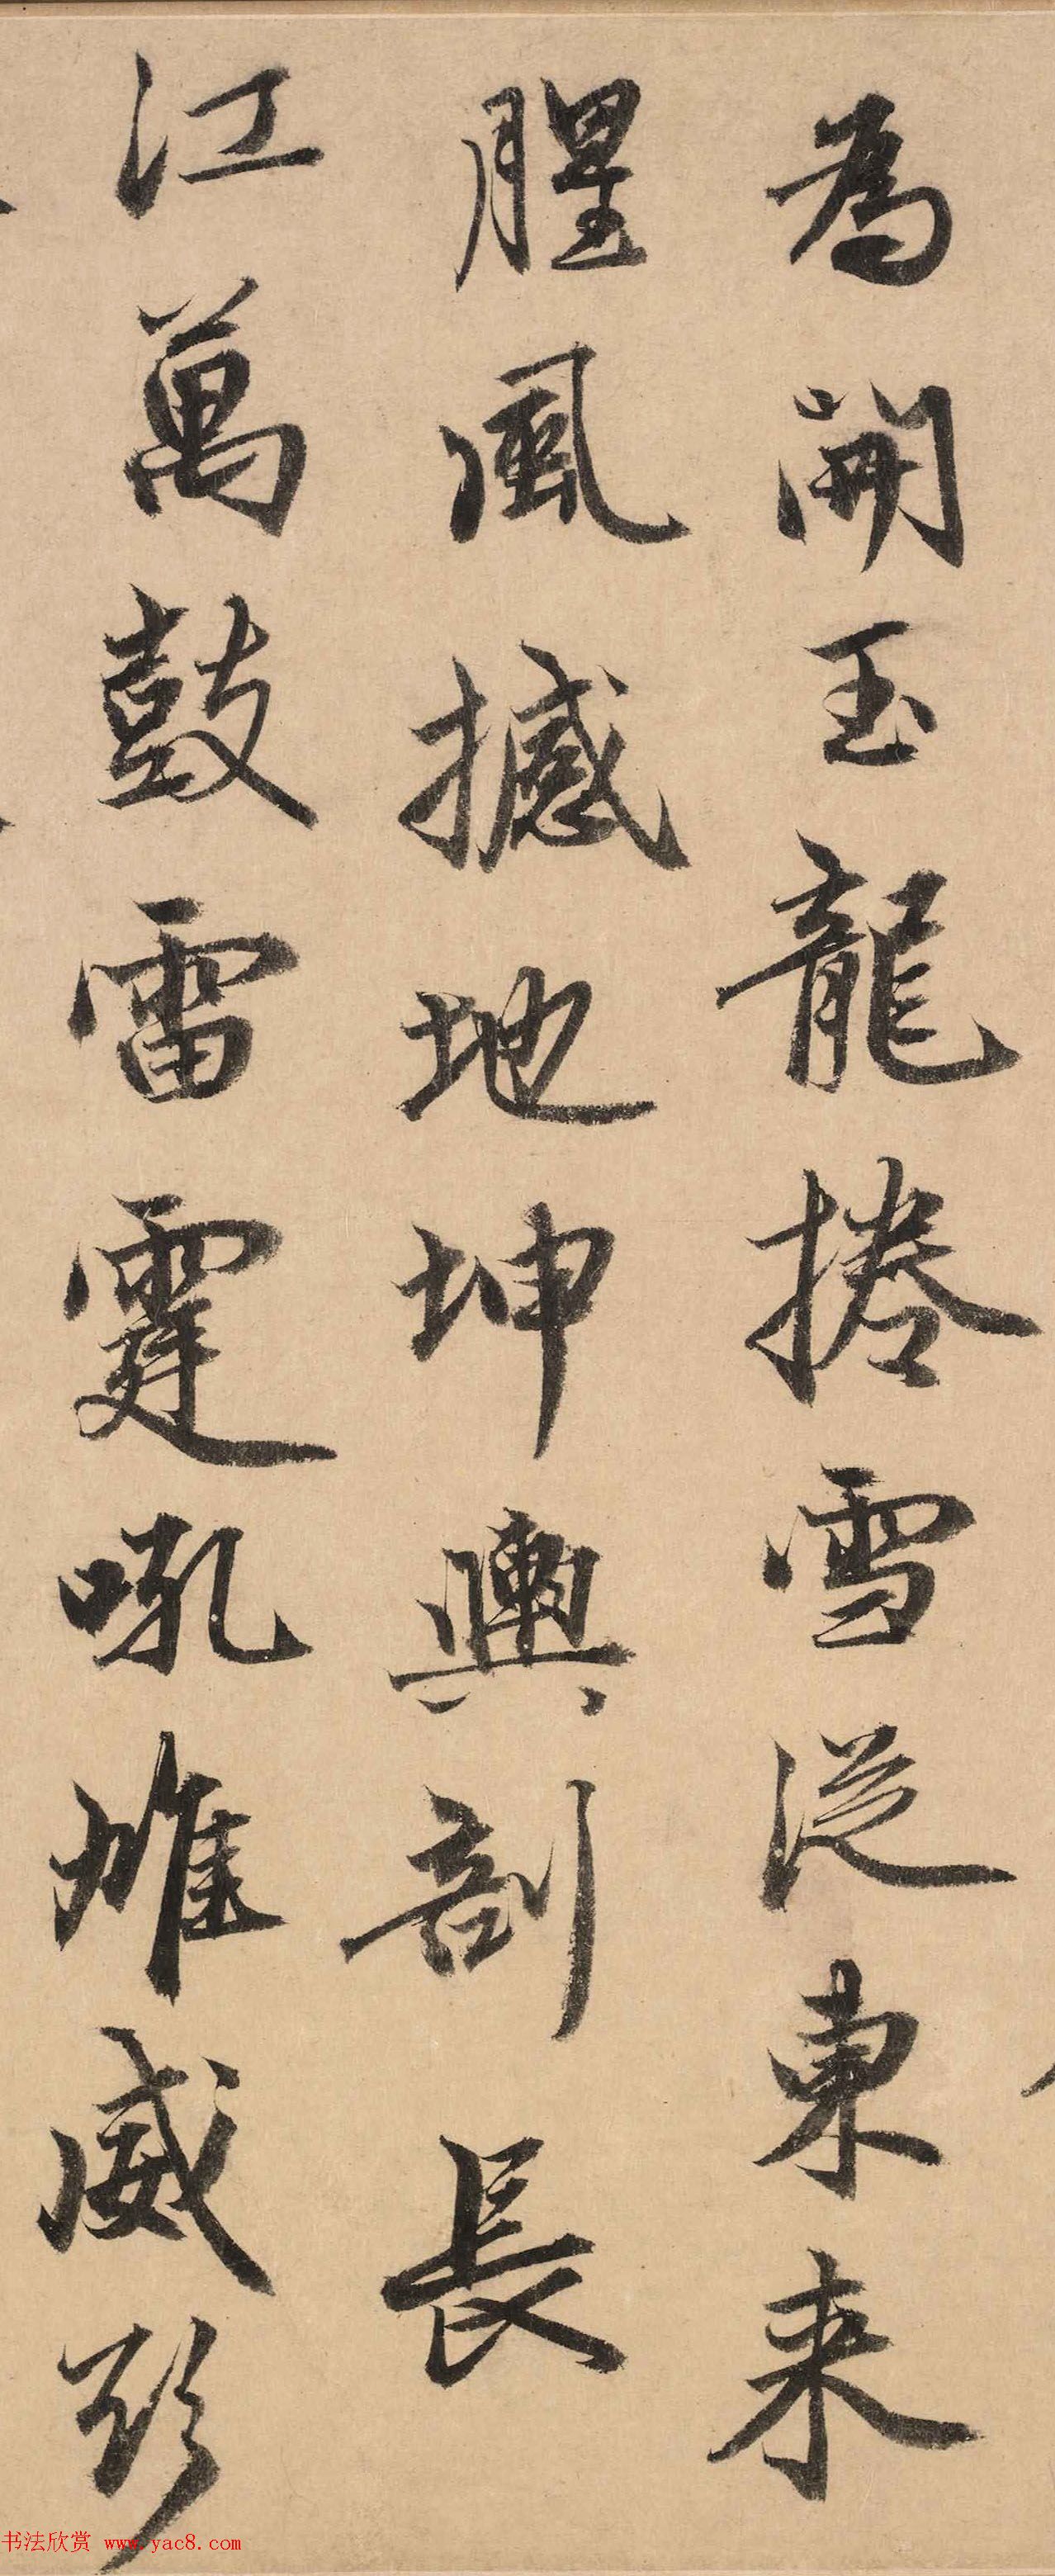 為開玉龍捲雪從東来
腥風撼地坤輿剖長
江萬鼓雷霆吼雄威
书法欣赏 www.yac8.com